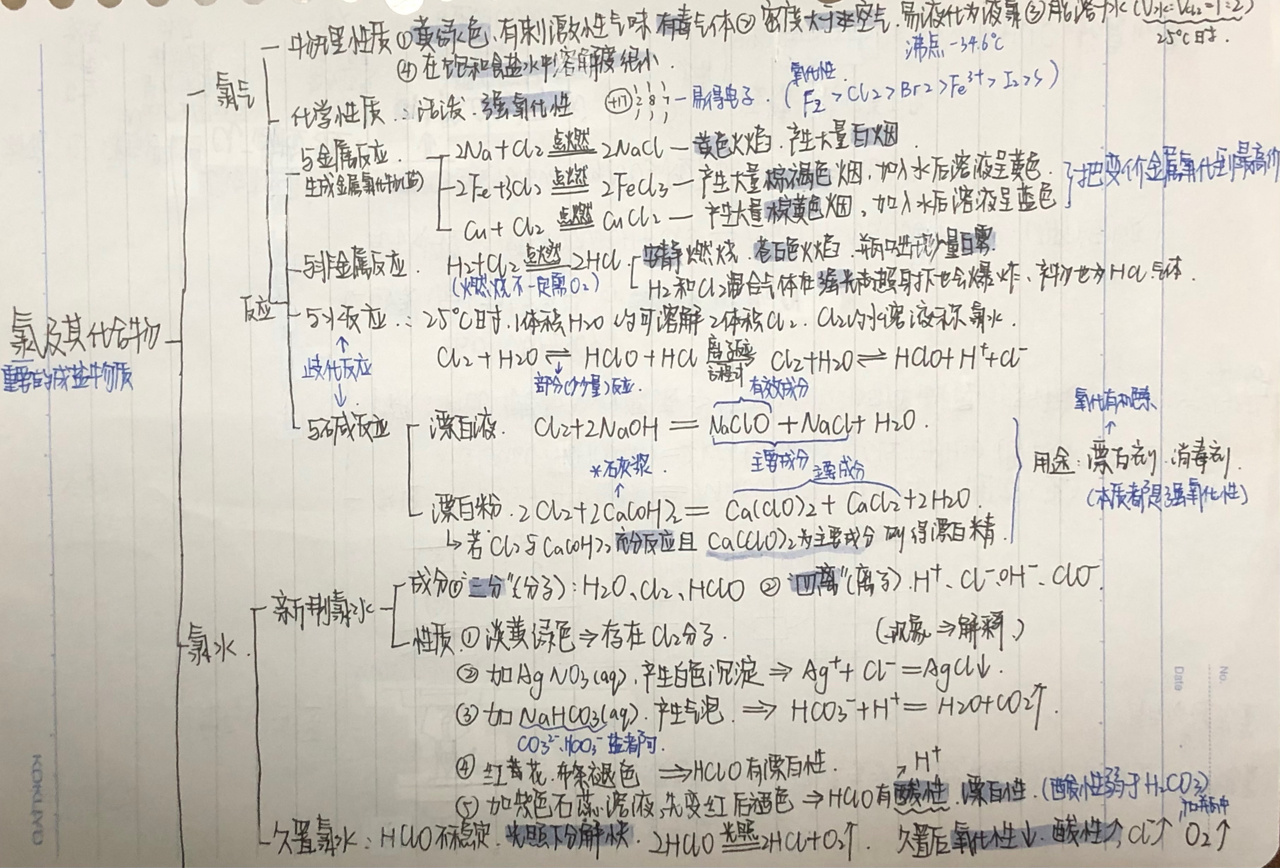 物理性质 ①黄绿色.有刺激性气味 有毒气体② 密度大于空气.易液化为液氯③ 能溶于水(V水:VCl2=1:2)
沸点-34.6℃
25℃时.
④在饱和食盐水中溶解度很小
氯气
氧化性
化学性质:活泼.强氧化性 +17 2 8 7 —易得电子. (F2>Cl2>Br2>Fe3+>I2>S)
与金属反应.
生成金属氯化物(盐)
2Na+Cl2 点燃 2NaCl—黄色火焰.产生大量白烟
2Fe+3Cl2 点燃 2FeCl3—产生大量棕褐色烟.加入水后溶液呈黄色.
把变价金属氧化到最高价
Cu+Cl2 点燃 CuCl2—产生大量棕黄色烟.加入水后溶液呈蓝色
与非金属反应. H2+Cl2 点燃 2HCl
(燃烧不一定需O2)
安静燃烧.苍白色火焰.瓶口出现少量白雾
H2和Cl2混合气体在强光照射下也会爆炸.产物也为HCl气体.
氯及其化合物
重要的成盐物质
反应
与水反应.:25℃时.1体积H2O约可溶解2体积Cl2. Cl2的水溶液称氯水.
歧化反应
Cl2+H2O⇌HClO+HCl 离子反应方程式 Cl2+H2O⇌HClO+H⁺+Cl⁻
部分(少量)反应.
有效成分
与碱反应
漂白液. Cl2+2NaOH=NaClO+NaCl+H2O.
主要成分
*石灰浆.
主要成分
漂白粉.2Cl2+2Ca(OH)2=Ca(ClO)2+CaCl2+2H2O.
↳若Cl2与Ca(OH)2充分反应且Ca(ClO)2为主要成分 则得漂白精.
氧化有机色素
↑
用途:漂白剂.消毒剂.
(本质都是强氧化性)
氯水.
新制氯水
成分①"三分"(分子):H2O、Cl2、HClO ②"四离"(离子).H⁺.Cl⁻.OH⁻.ClO⁻
性质.①淡黄绿色⇒存在Cl2分子. (现象⇒解释)
②加AgNO3(aq).产生白色沉淀⇒Ag⁺+Cl⁻=AgCl↓.
③加NaHCO3(aq).产生气泡.⇒HCO3⁻+H⁺=H2O+CO2↑.
CO3²⁻.HCO3⁻盐都可.
④红黄花.布条褪色⇒HClO有漂白性.
H⁺
⑤加紫色石蕊溶液.先变红后褪色⇒HClO有酸性.漂白性.(酸性弱于H2CO3)
久置氯水:HClO不稳定.光照下分解快.2HClO 光照 2HCl+O2↑ 久置后氧化性↓.酸性↑.Cl⁻↑ O2↑
KOKUYO
No.
Date